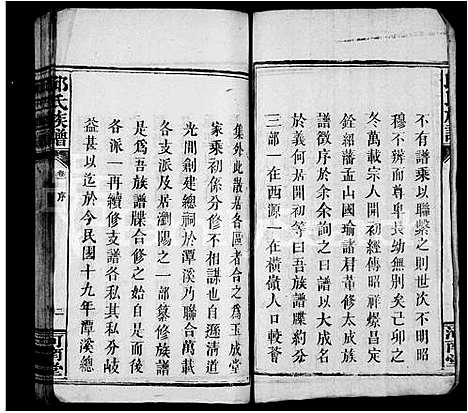 不有譜乘以聯繫之則世次不明昭
穆不辨而尊卑長幼無別矣己卯之
冬萬載宗人開初經傳昭祥燦昌庚
銓紹藩孟山國瑜諸君董修吾族大
譜徵序於余余詢之曰譜大成名
於義何居開初等曰吾族譜牒約分
三部一在西源一在橫嶺人口較
集外此散居各區者合之爲玉成堂
家乘初係分修不同自遜清道
光間剏建總祠於潭溪乃聯合萬載
各支派及居瀏陽之一部彙修族譜
是爲吾族譜牒合修之始自是而後
各派一再續修支譜各私其私分歧
益甚以迄於今民國十九年潭溪總
氏族譜
卷 序
二
河南堂